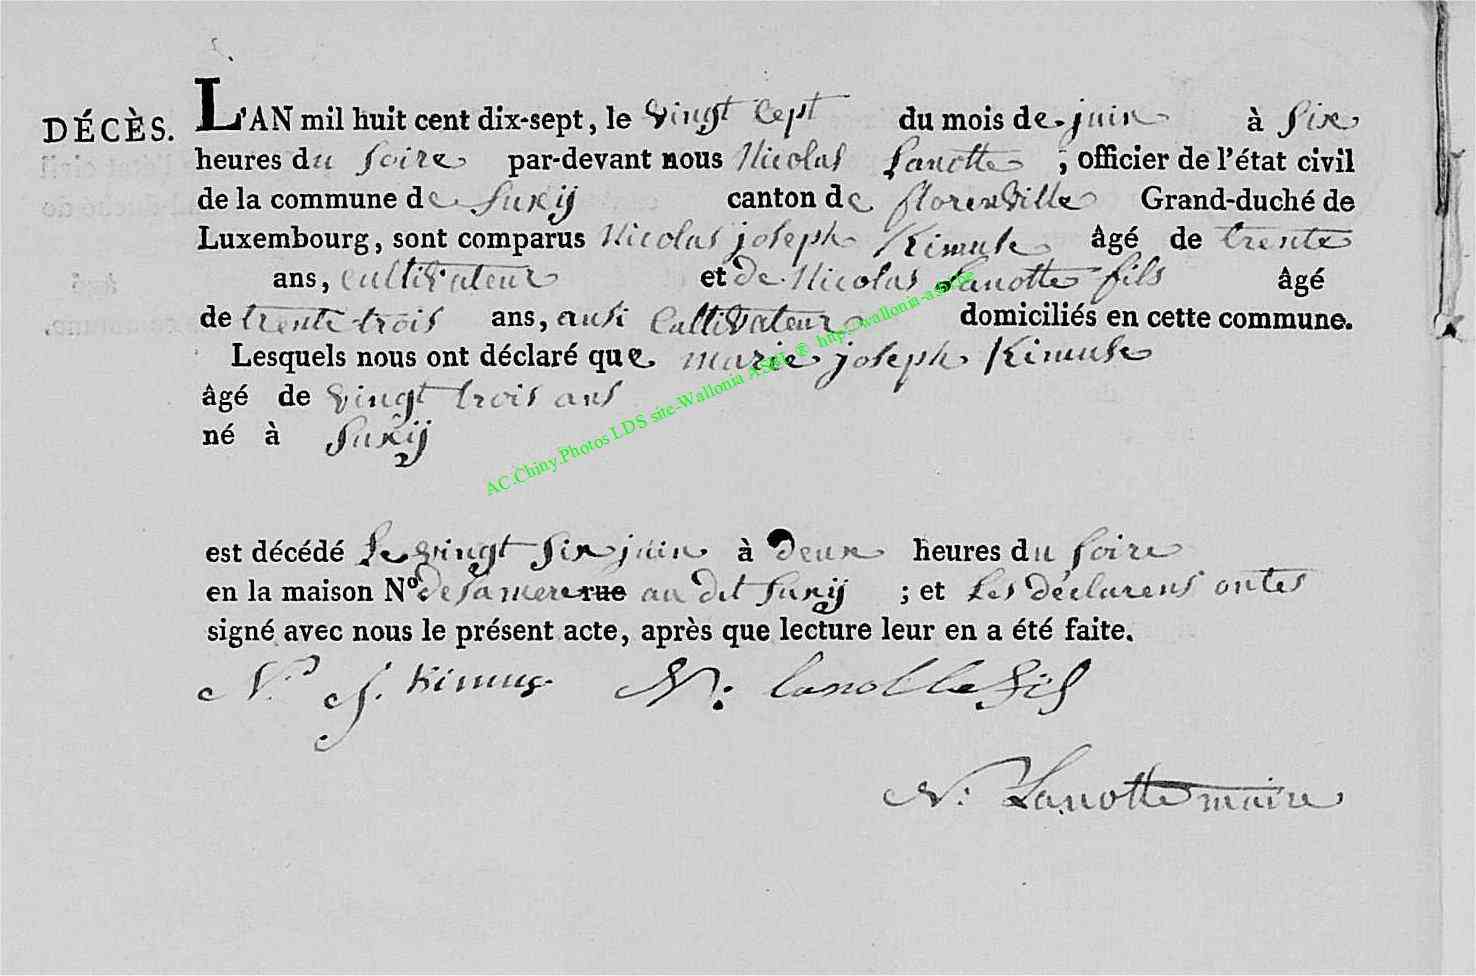 DÉCÈS. L'AN mil huit cent dix-sept, le vingt cept du mois de juin à Six
heures du soire par-devant nous Nicolas Lanotte ; officier de l'état civil
de la commune de Suxij canton de florenville Grand-duché de
Luxembourg, sont comparus Nicolas joseph Kimuse âgé de trente
ans, cultivateur et de Nicolas Lanotte fils âgé
de trente trois ans, ausi Cultivateur domiciliés en cette commune.
Lesquels nous ont déclaré que marie joseph Kimuse
âgé de vingt trois ans
né à Suxij
AC.Chiny.Photos LDS site-Wallonia ASBL ® http://wallonia-asbl.be
est décédé Le vingt Six juin à deux heures du soire
en la maison No de sa mere rue au dit Suxij ; et Les déclarens ontes
signé avec nous le présent acte, après que lecture leur en a été faite.
N. J. Kimus N: lanotte fils
N: Lanotte maire